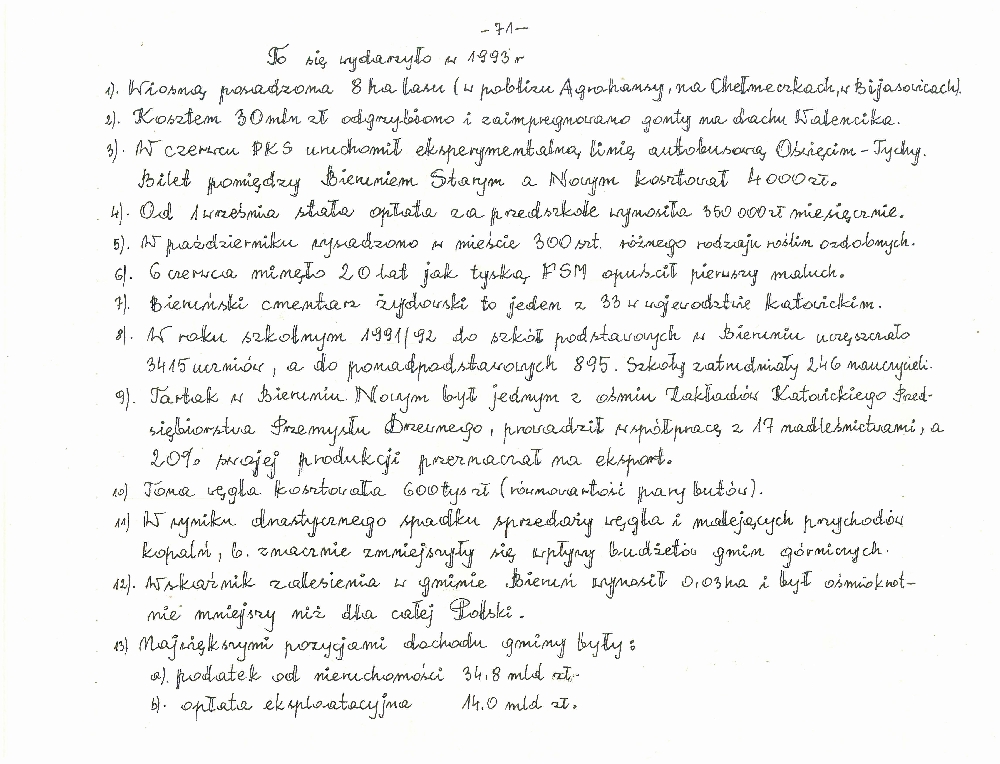 -71-
To się wydarzyło w 1993 r
1). Wiosną posadzona 8 ha lasu (w pobliżu Agrohansy, na Chełmeczkach, w Bijasowicach).
2). Kosztem 30 mln zł odgrzybiono i zaimpregnowano gonty na dachu Walencika.
3). W czerwcu PKS uruchomił eksperymentalną linię autobusową Oświęcim - Tychy.
Bilet pomiędzy Bieruniem Starym a Nowym kosztował 4000 zł.
4). Od 1 września stała opłata za przedszkole wynosiła 350 000 zł miesięcznie.
5). W październiku wysadzono w mieście 300 szt. różnego rodzaju roślin ozdobnych.
6). 6 czerwca minęło 20 lat jak tyską FSM opuścił pierwszy maluch.
7). Bieruński cmentarz żydowski to jeden z 33 w województwie katowickim.
8). W roku szkolnym 1991/92 do szkół podstawowych w Bieruniu uczęszczało
3415 uczniów, a do ponadpodstawowych 895. Szkoły zatrudniały 246 nauczycieli.
9). Tartak w Bieruniu Nowym był jednym z ośmiu Zakładów Katowickiego Przed-
siębiorstwa Przemysłu Drzewnego, prowadził współpracę z 17 nadleśnictwami, a
20% swojej produkcji przeznaczał na eksport.
10) Tona węgla kosztowała 600 tys zł (równowartość pary butów).
11) W wyniku drastycznego spadku sprzedaży węgla i malejących przychodów
kopalń, b. znacznie zmniejszyły się wpływy budżetów gmin górniczych.
12). Wskaźnik zalesienia w gminie Bieruń wynosił 0,03 ha i był ośmiokrot-
nie mniejszy niż dla całej Polski.
13) Największymi pozycjami dochodu gminy były:
a). podatek od nieruchomości 34.8 mld zł.
b). opłata eksploatacyjna 14.0 mld zł.